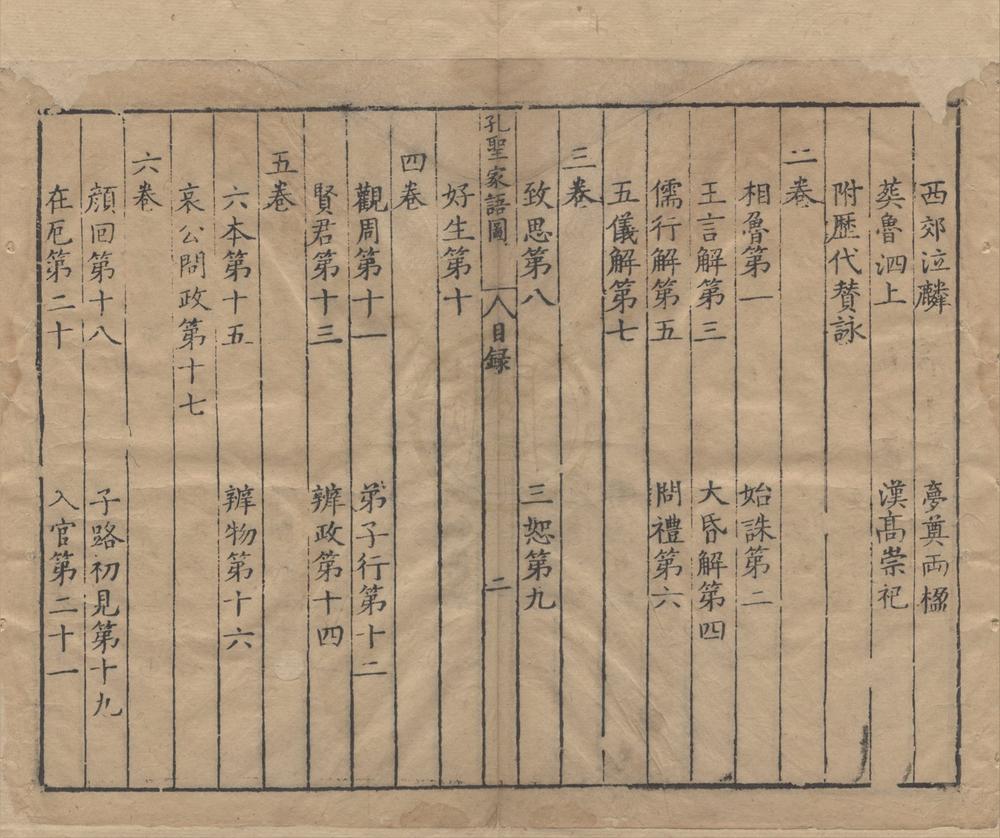 西郊泣麟 夢奠兩楹
葬魯泗上 漢高崇祀
附歷代賛詠
二卷
相魯第一 始誅第二
王言解第三 大昏解第四
儒行解第五 問禮第六
五儀解第七
三卷
致思第八 三恕第九
孔聖家語圖 目録 二
好生第十
四卷
觀周第十一 弟子行第十二
賢君第十三 辨政第十四
五卷
六本第十五 辨物第十六
哀公問政第十七
六卷
顔回第十八 子路初見第十九
在厄第二十 入官第二十一